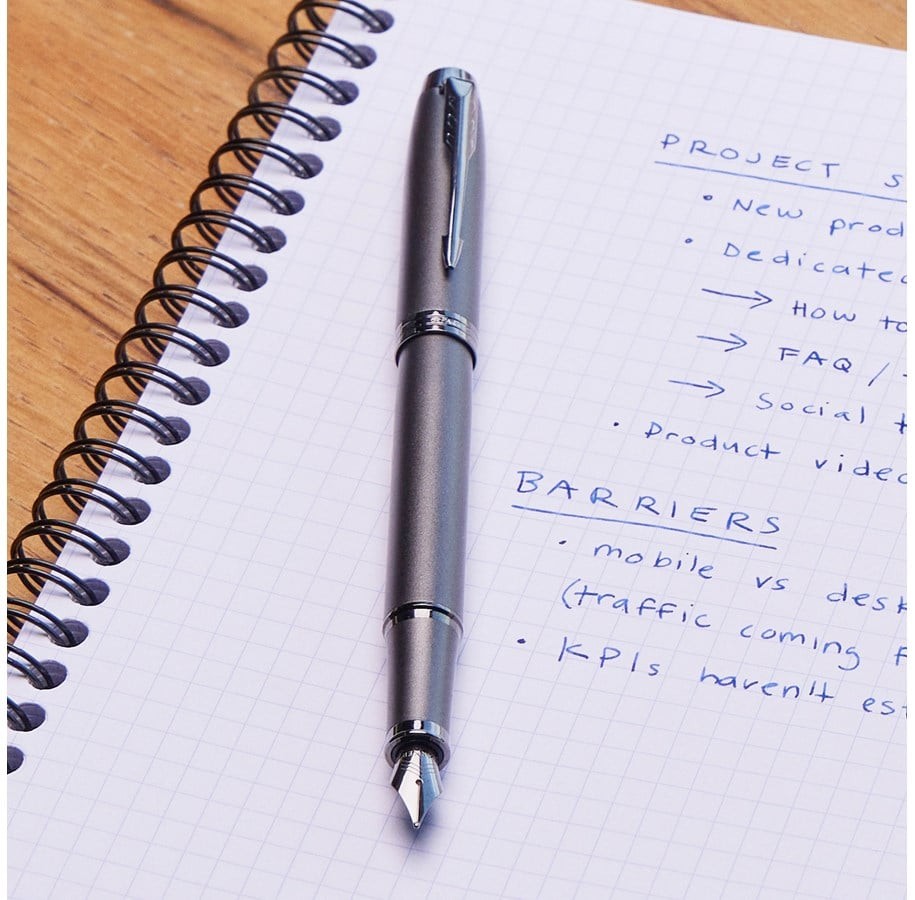 PROJECT S
• New prod
• Dedicated
→ How to
→ FAQ /
→ Social t
• Product video
BARRIERS
• mobile vs desk
(traffic coming f
• KPIs haven't est